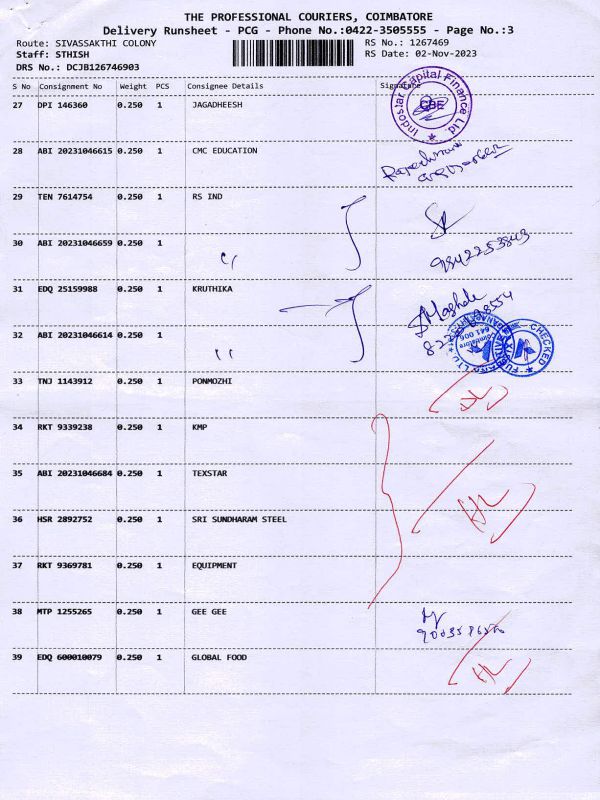 THE PROFESSIONAL COURIERS, COIMBATORE
Delivery Runsheet - PCG - Phone No.:0422-3505555 - Page No.:3
Route: SIVASSAKTHI COLONY RS No.: 1267469
Staff: STHISH RS Date: 02-Nov-2023
DRS No.: DCJB126746903
S No Consignment No Weight PCS Consignee Details Signature
27 DPI 146360 0.250 1 JAGADHEESH
Indostar Capital Finance Ltd. CBE
28 ABI 20231046615 0.250 1 CMC EDUCATION
29 TEN 7614754 0.250 1 RS IND
30 ABI 20231046659 0.250 1
9842253843
31 EDQ 25159988 0.250 1 KRUTHIKA
32 ABI 20231046614 0.250 1
CHECKED
33 TNJ 1143912 0.250 1 PONMOZHI
34 RKT 9339238 0.250 1 KMP
35 ABI 20231046684 0.250 1 TEXSTAR
36 HSR 2892752 0.250 1 SRI SUNDHARAM STEEL
37 RKT 9369781 0.250 1 EQUIPMENT
38 MTP 1255265 0.250 1 GEE GEE
39 EDQ 600010079 0.250 1 GLOBAL FOOD